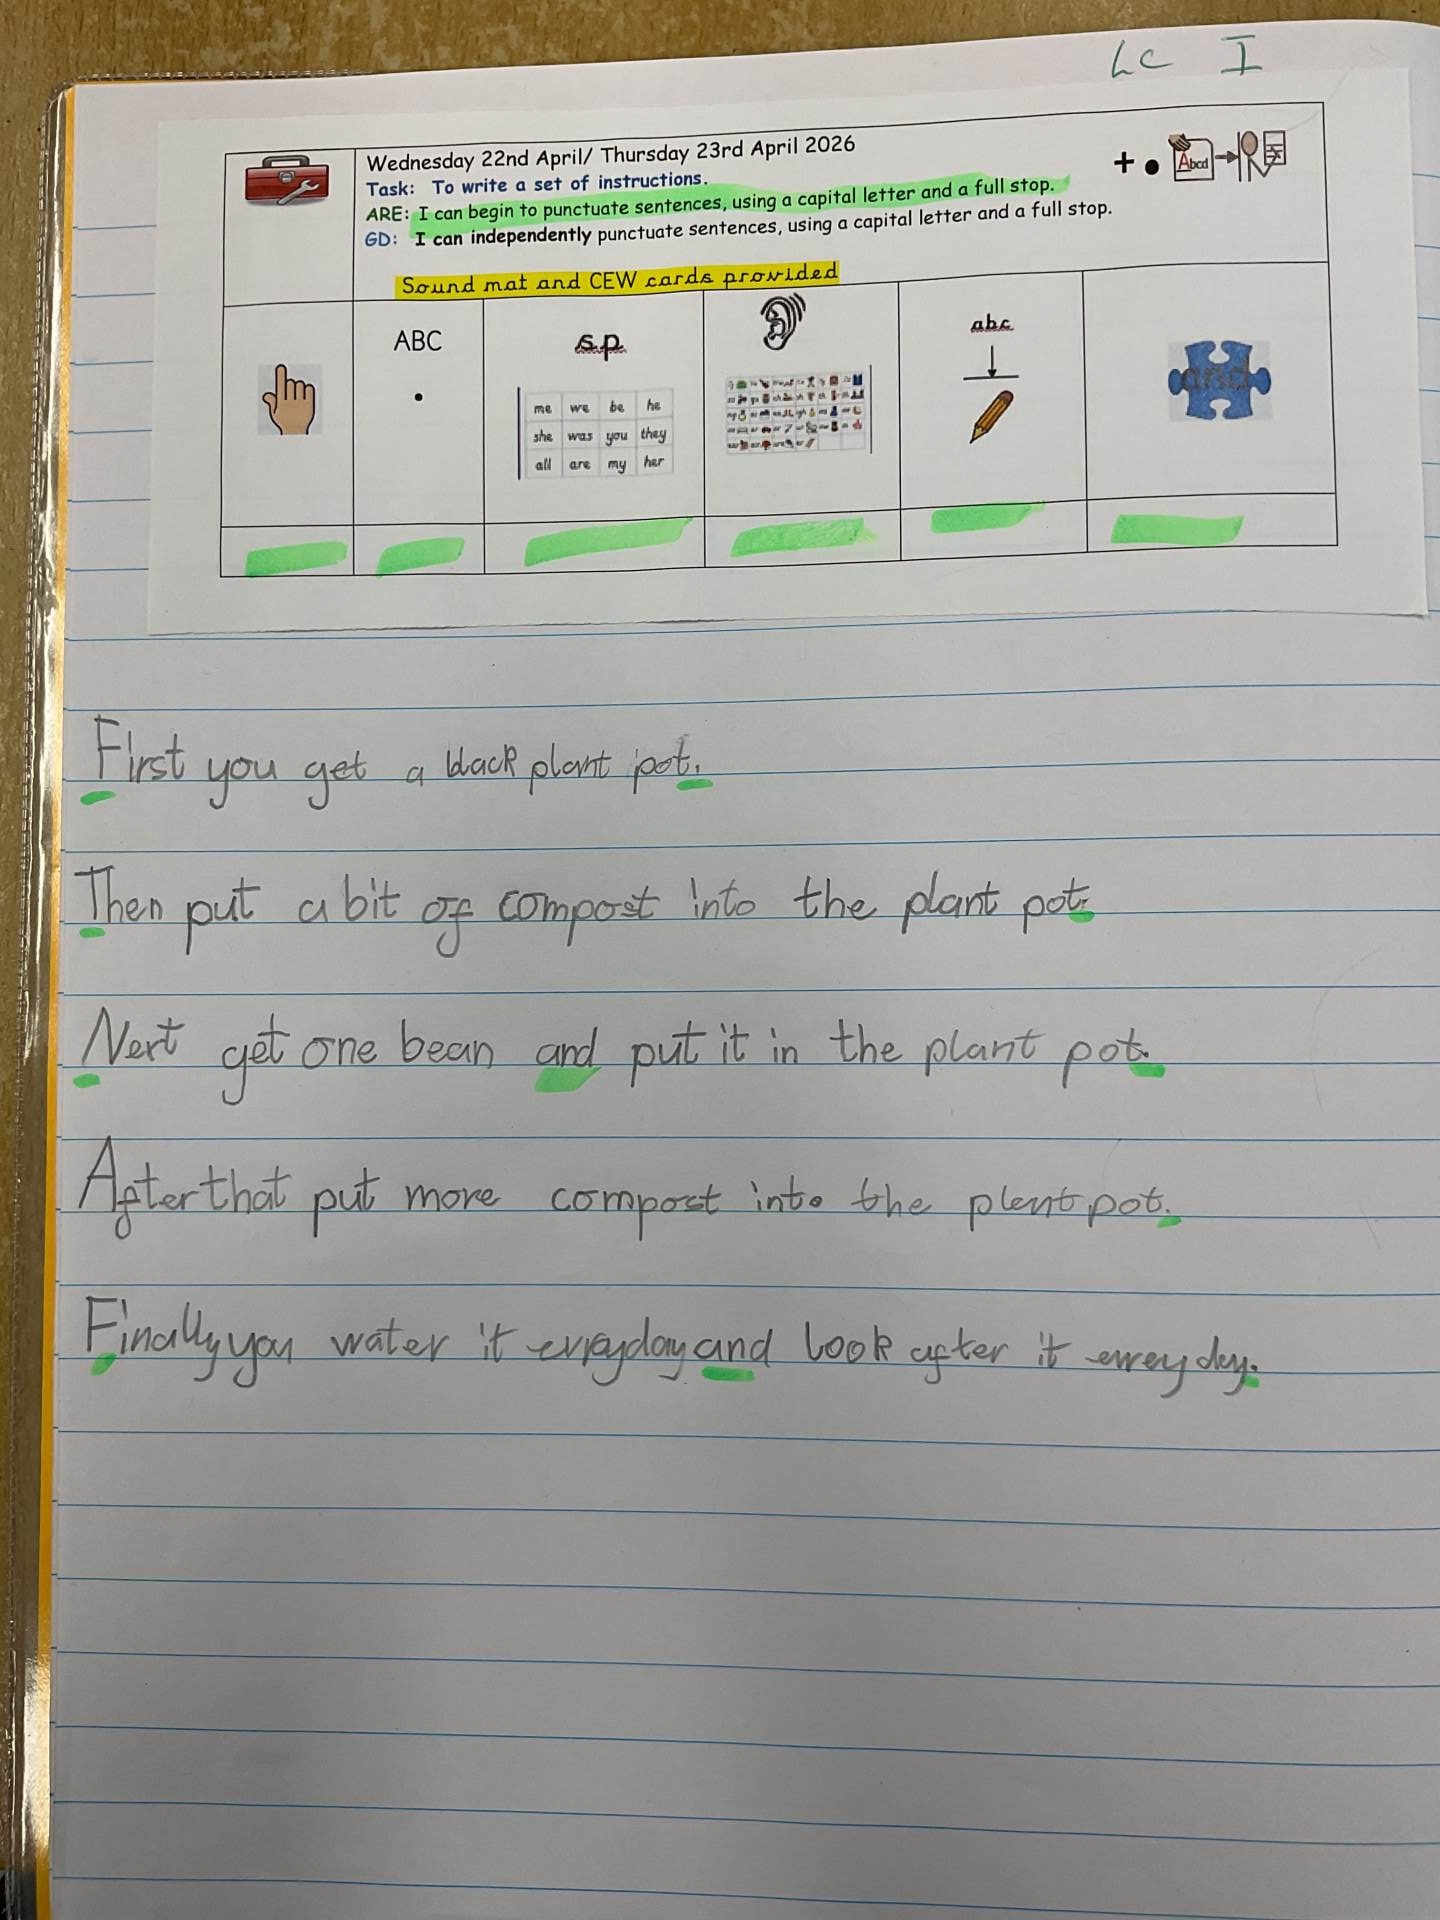 LC I
Wednesday 22nd April/ Thursday 23rd April 2026
Task: To write a set of instructions.
ARE: I can begin to punctuate sentences, using a capital letter and a full stop.
GD: I can independently punctuate sentences, using a capital letter and a full stop.
+ • Abcd
Sound mat and CEW cards provided
ABC
.
s.p.
abc
me we be he
she was you they
all are my her
and
First you get a black plant pot.
Then put a bit of compost into the plant pot.
Next get one bean and put it in the plant pot.
After that put more compost into the plent pot.
Finally you water it and look after it day.